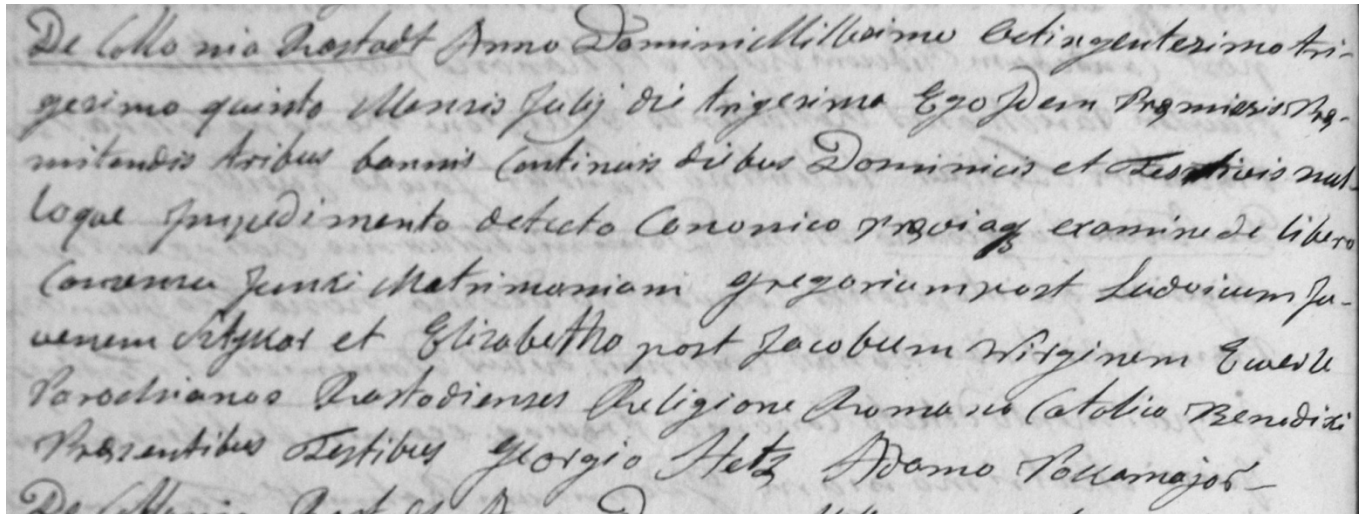 De Collonia Rastadt Anno Domini Millesimo Octingentesimo tri-
gesimo quinto Mensis Julij die trigesima Ego Idem Premissis Pre-
mitendis tribus bannis Continuis diebus Dominicis et Festivis nul-
loque Impedimento detecto Canonico praeviaq examine de libero
Consensu Junxi Matrimoniam Gregorium post Ludovicum Ju-
venem et Elizabetha post Jacobum Wirginem
Parochianos Rastadienses Religione Romano Catolica Benedixi
Presentibus Testibus Georgio Adamo
De Collonia Rastadt Anno